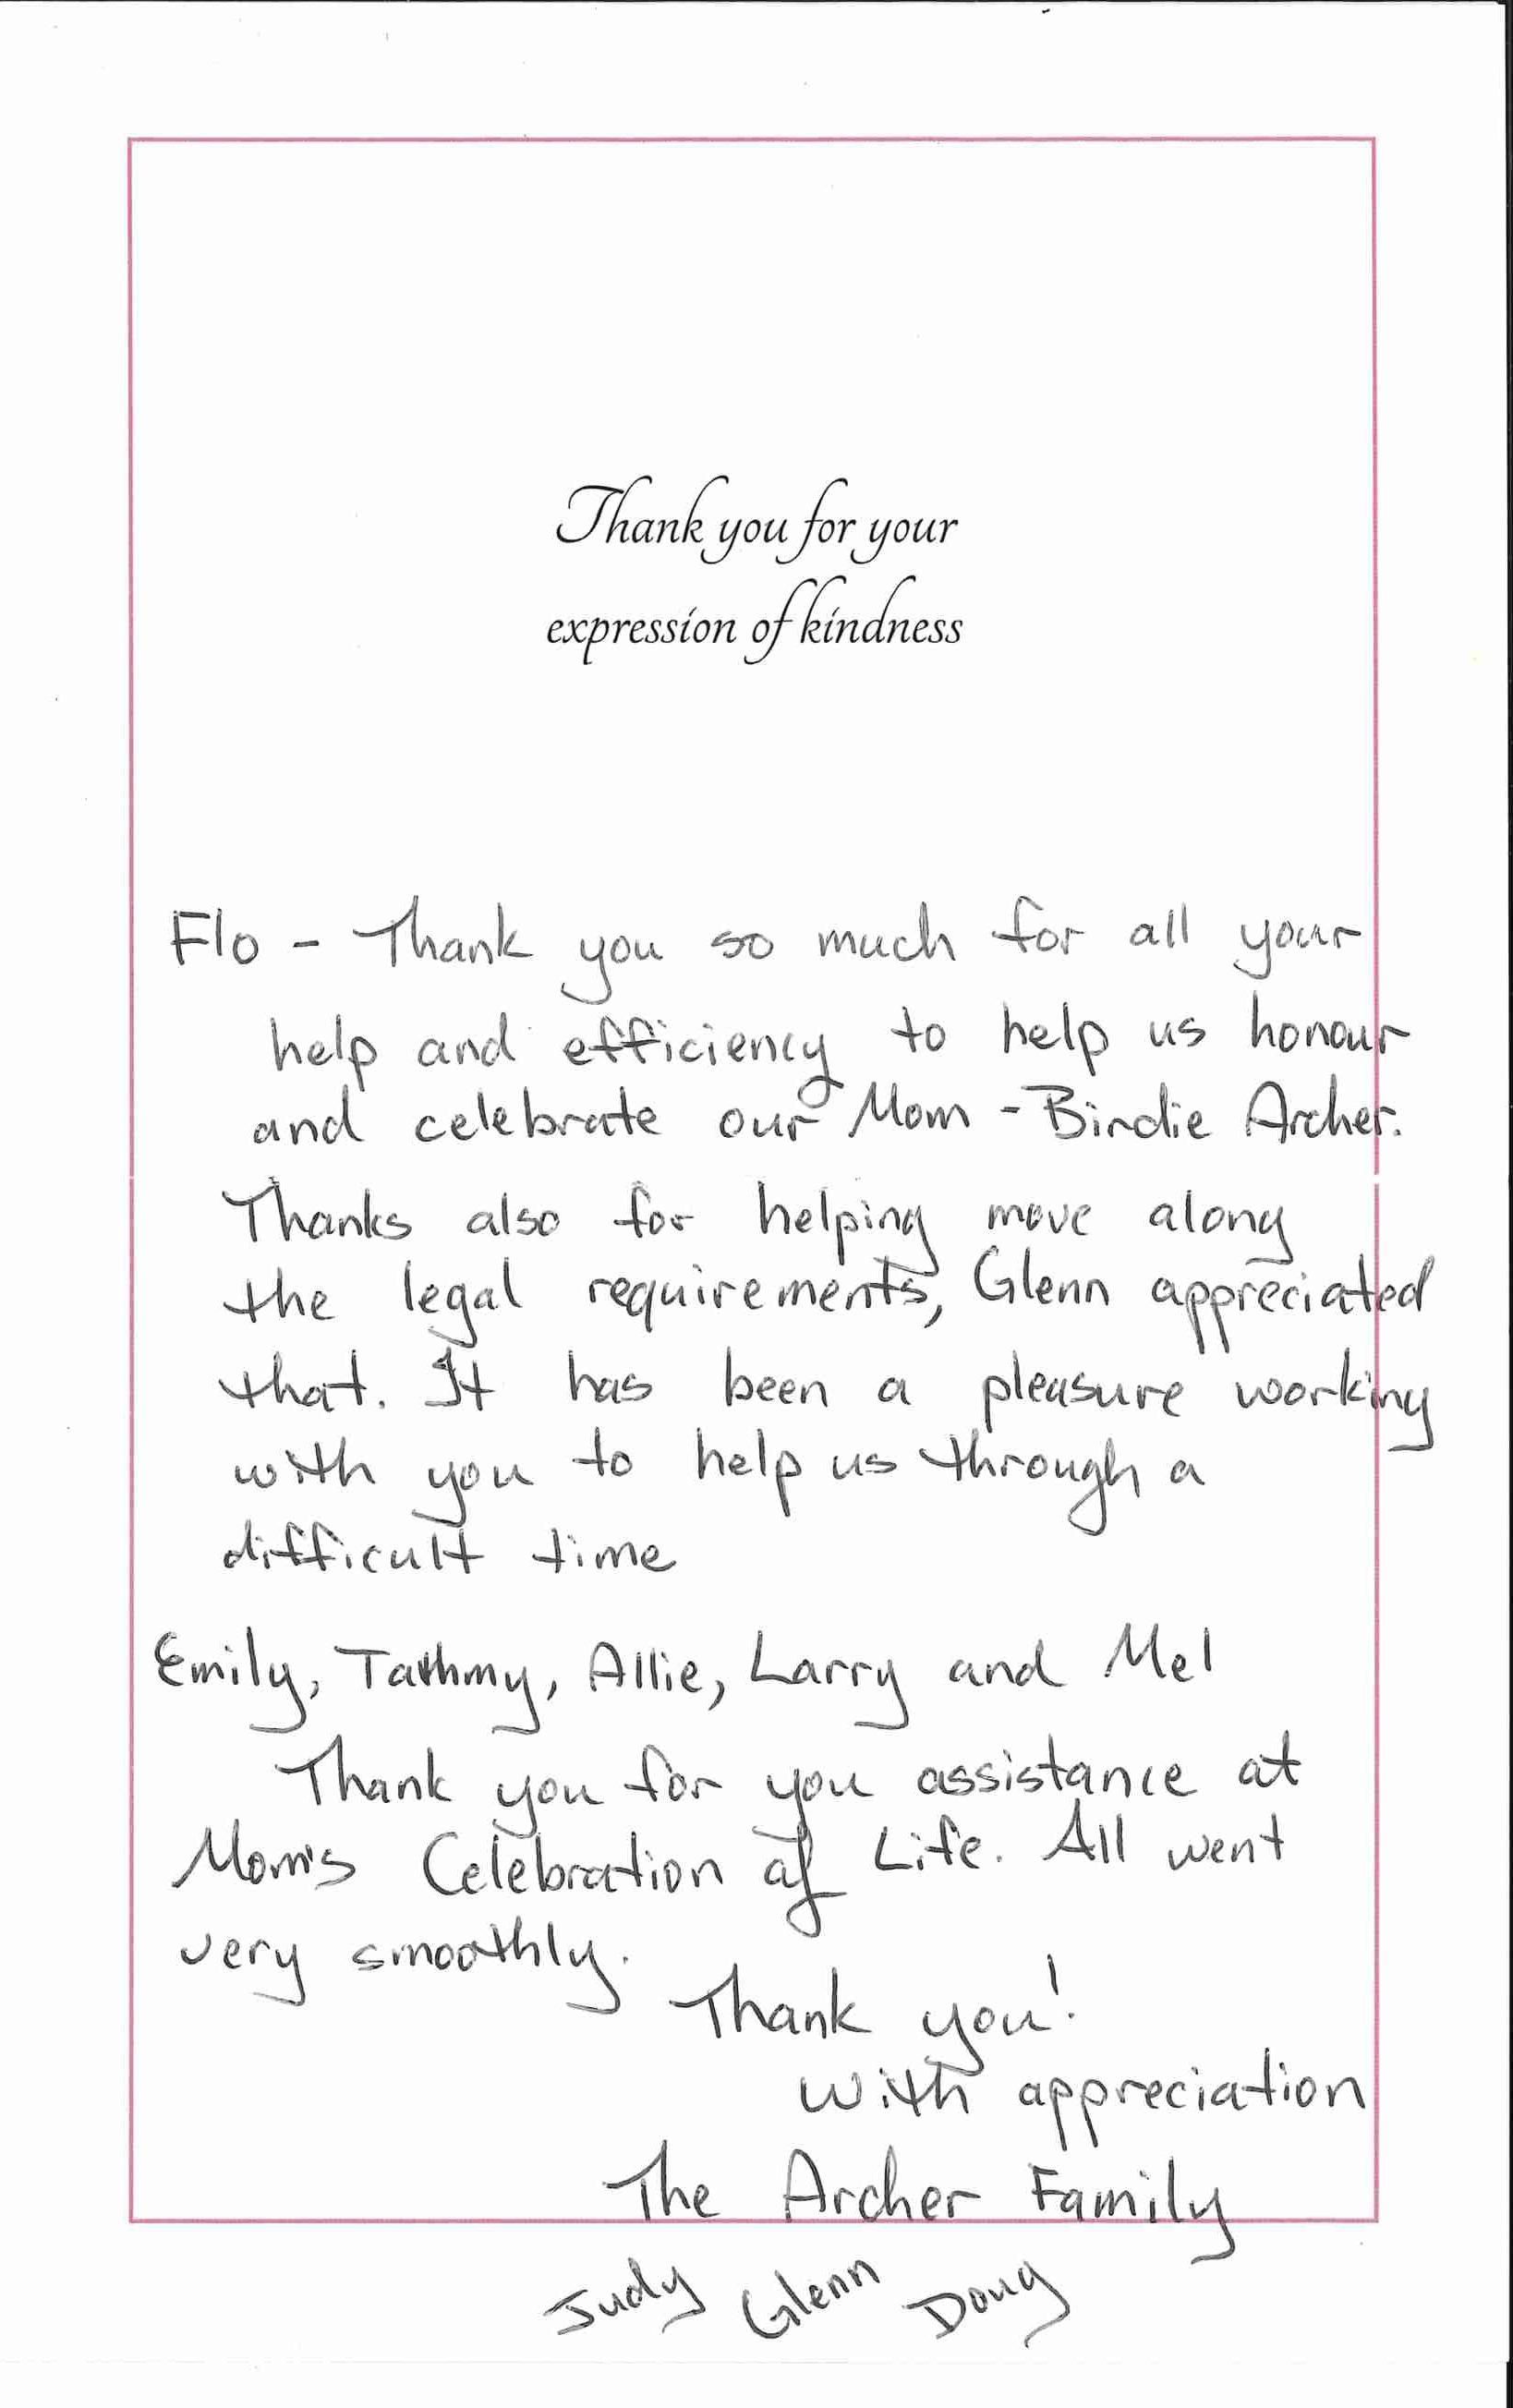 Thank you for your
expression of kindness
Flo - Thank you so much for all your
help and efficiency to help us honour
and celebrate our Mom - Birdie Archer.
Thanks also for helping move along
the legal requirements, Glenn appreciated
that. It has been a pleasure working
with you to help us through a
difficult time
Emily, Allie, Larry and Mel
Thank you for you assistance at
Mom's Celebration of Life. All went
very smoothly.
Thank you!
with appreciation
The Archer Family
Judy Glenn Doug